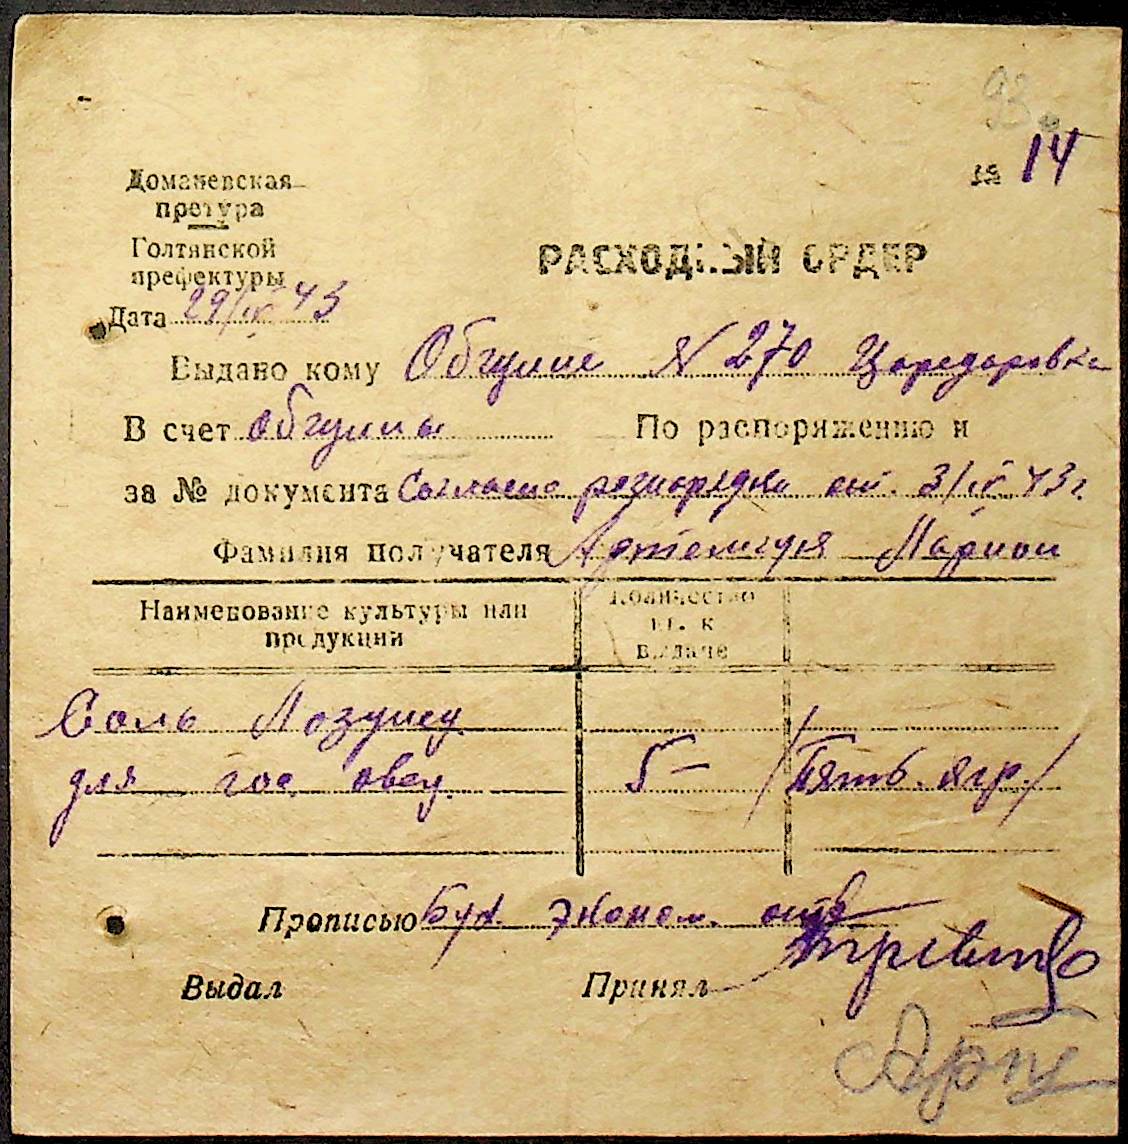 93
№ 14
Доманевская
претура
Голтянской
префектуры
РАСХОДНЫЙ ОРДЕР
Дата 29/IV 43
Выдано кому Обгулие № 270
В счет обгулии По распоряжению и
за № документа Согласно от. 3/IV 43 г.
Фамилия получателя Марион
Наименование культуры или
продукции
Количество
ц. к
выдаче
Соль
для гос. овец. 5- /Пять. кгр./
Прописью Бух. эконом.
Выдал Принял